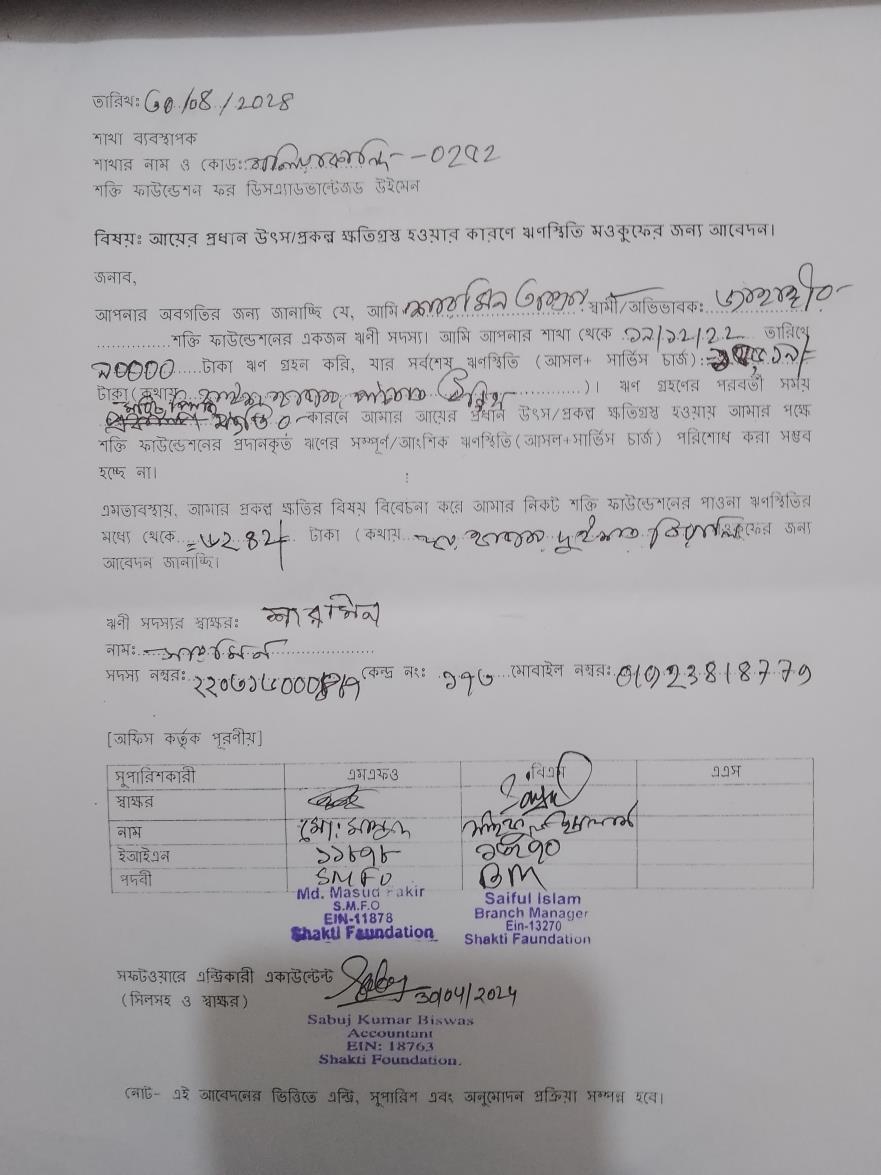 তারিখঃ ৩০/০৪/২০২৪
শাখা ব্যবস্থাপক
শাখার নাম ও কোডঃ -০২৭২
শক্তি ফাউন্ডেশন ফর ডিসএ্যাডভান্টেজড উইমেন
বিষয়ঃ আয়ের প্রধান উৎস/প্রকল্প ক্ষতিগ্রস্ত হওয়ার কারণে ঋণস্থিতি মওকুফের জন্য আবেদন।
জনাব,
আপনার অবগতির জন্য জানাচ্ছি যে, আমি শারমিন আক্তার স্বামী/অভিভাবকঃ জাহাঙ্গীর
শক্তি ফাউন্ডেশনের একজন ঋণী সদস্য। আমি আপনার শাখা থেকে ১২/২২ তারিখে
০০০০ টাকা ঋণ গ্রহন করি, যার সর্বশেষ ঋণস্থিতি (আসল+ সার্ভিস চার্জ)ঃ
টাকা (কথায় হাজার )। ঋণ গ্রহণের পরবর্তী সময়
কারনে আমার আয়ের প্রধান উৎস/প্রকল্প ক্ষতিগ্রস্ত হওয়ায় আমার পক্ষে
শক্তি ফাউন্ডেশনের প্রদানকৃত ঋণের সম্পূর্ণ/আংশিক ঋণস্থিতি(আসল+সার্ভিস চার্জ) পরিশোধ করা সম্ভব
হচ্ছে না।
এমতাবস্থায়, আমার প্রকল্প ক্ষতির বিষয় বিবেচনা করে আমার নিকট শক্তি ফাউন্ডেশনের পাওনা ঋণস্থিতির
মধ্যে থেকে টাকা (কথায় হাজার দুইশত জন্য
আবেদন জানাচ্ছি।
ঋণী সদস্যর স্বাক্ষরঃ শারমিন
নামঃ শারমিন
সদস্য নম্বরঃ কেন্দ্র নংঃ ১৭৩ মোবাইল নম্বরঃ
[অফিস কর্তৃক পূরনীয়]
সুপারিশকারী এমএফও বিএম এএস
স্বাক্ষর
নাম মোঃ মাসুদ
ইআইএন ১১৮৭৮ ১৩২৭০
পদবী SMFO BM
Md. Masud Fakir
S.M.F.O
EIN-11878
Shakti Faundation
Saiful Islam
Branch Manager
Ein-13270
Shakti Foundation
সফটওয়ারে এন্ট্রিকারী একাউন্টেন্ট 30/04/2024
(সিলসহ ও স্বাক্ষর)
Sabuj Kumar Biswas
Accountant
EIN: 18763
Shakti Foundation.
নোট- এই আবেদনের ভিত্তিতে এন্ট্রি, সুপারিশ এবং অনুমোদন প্রক্রিয়া সম্পন্ন হবে।